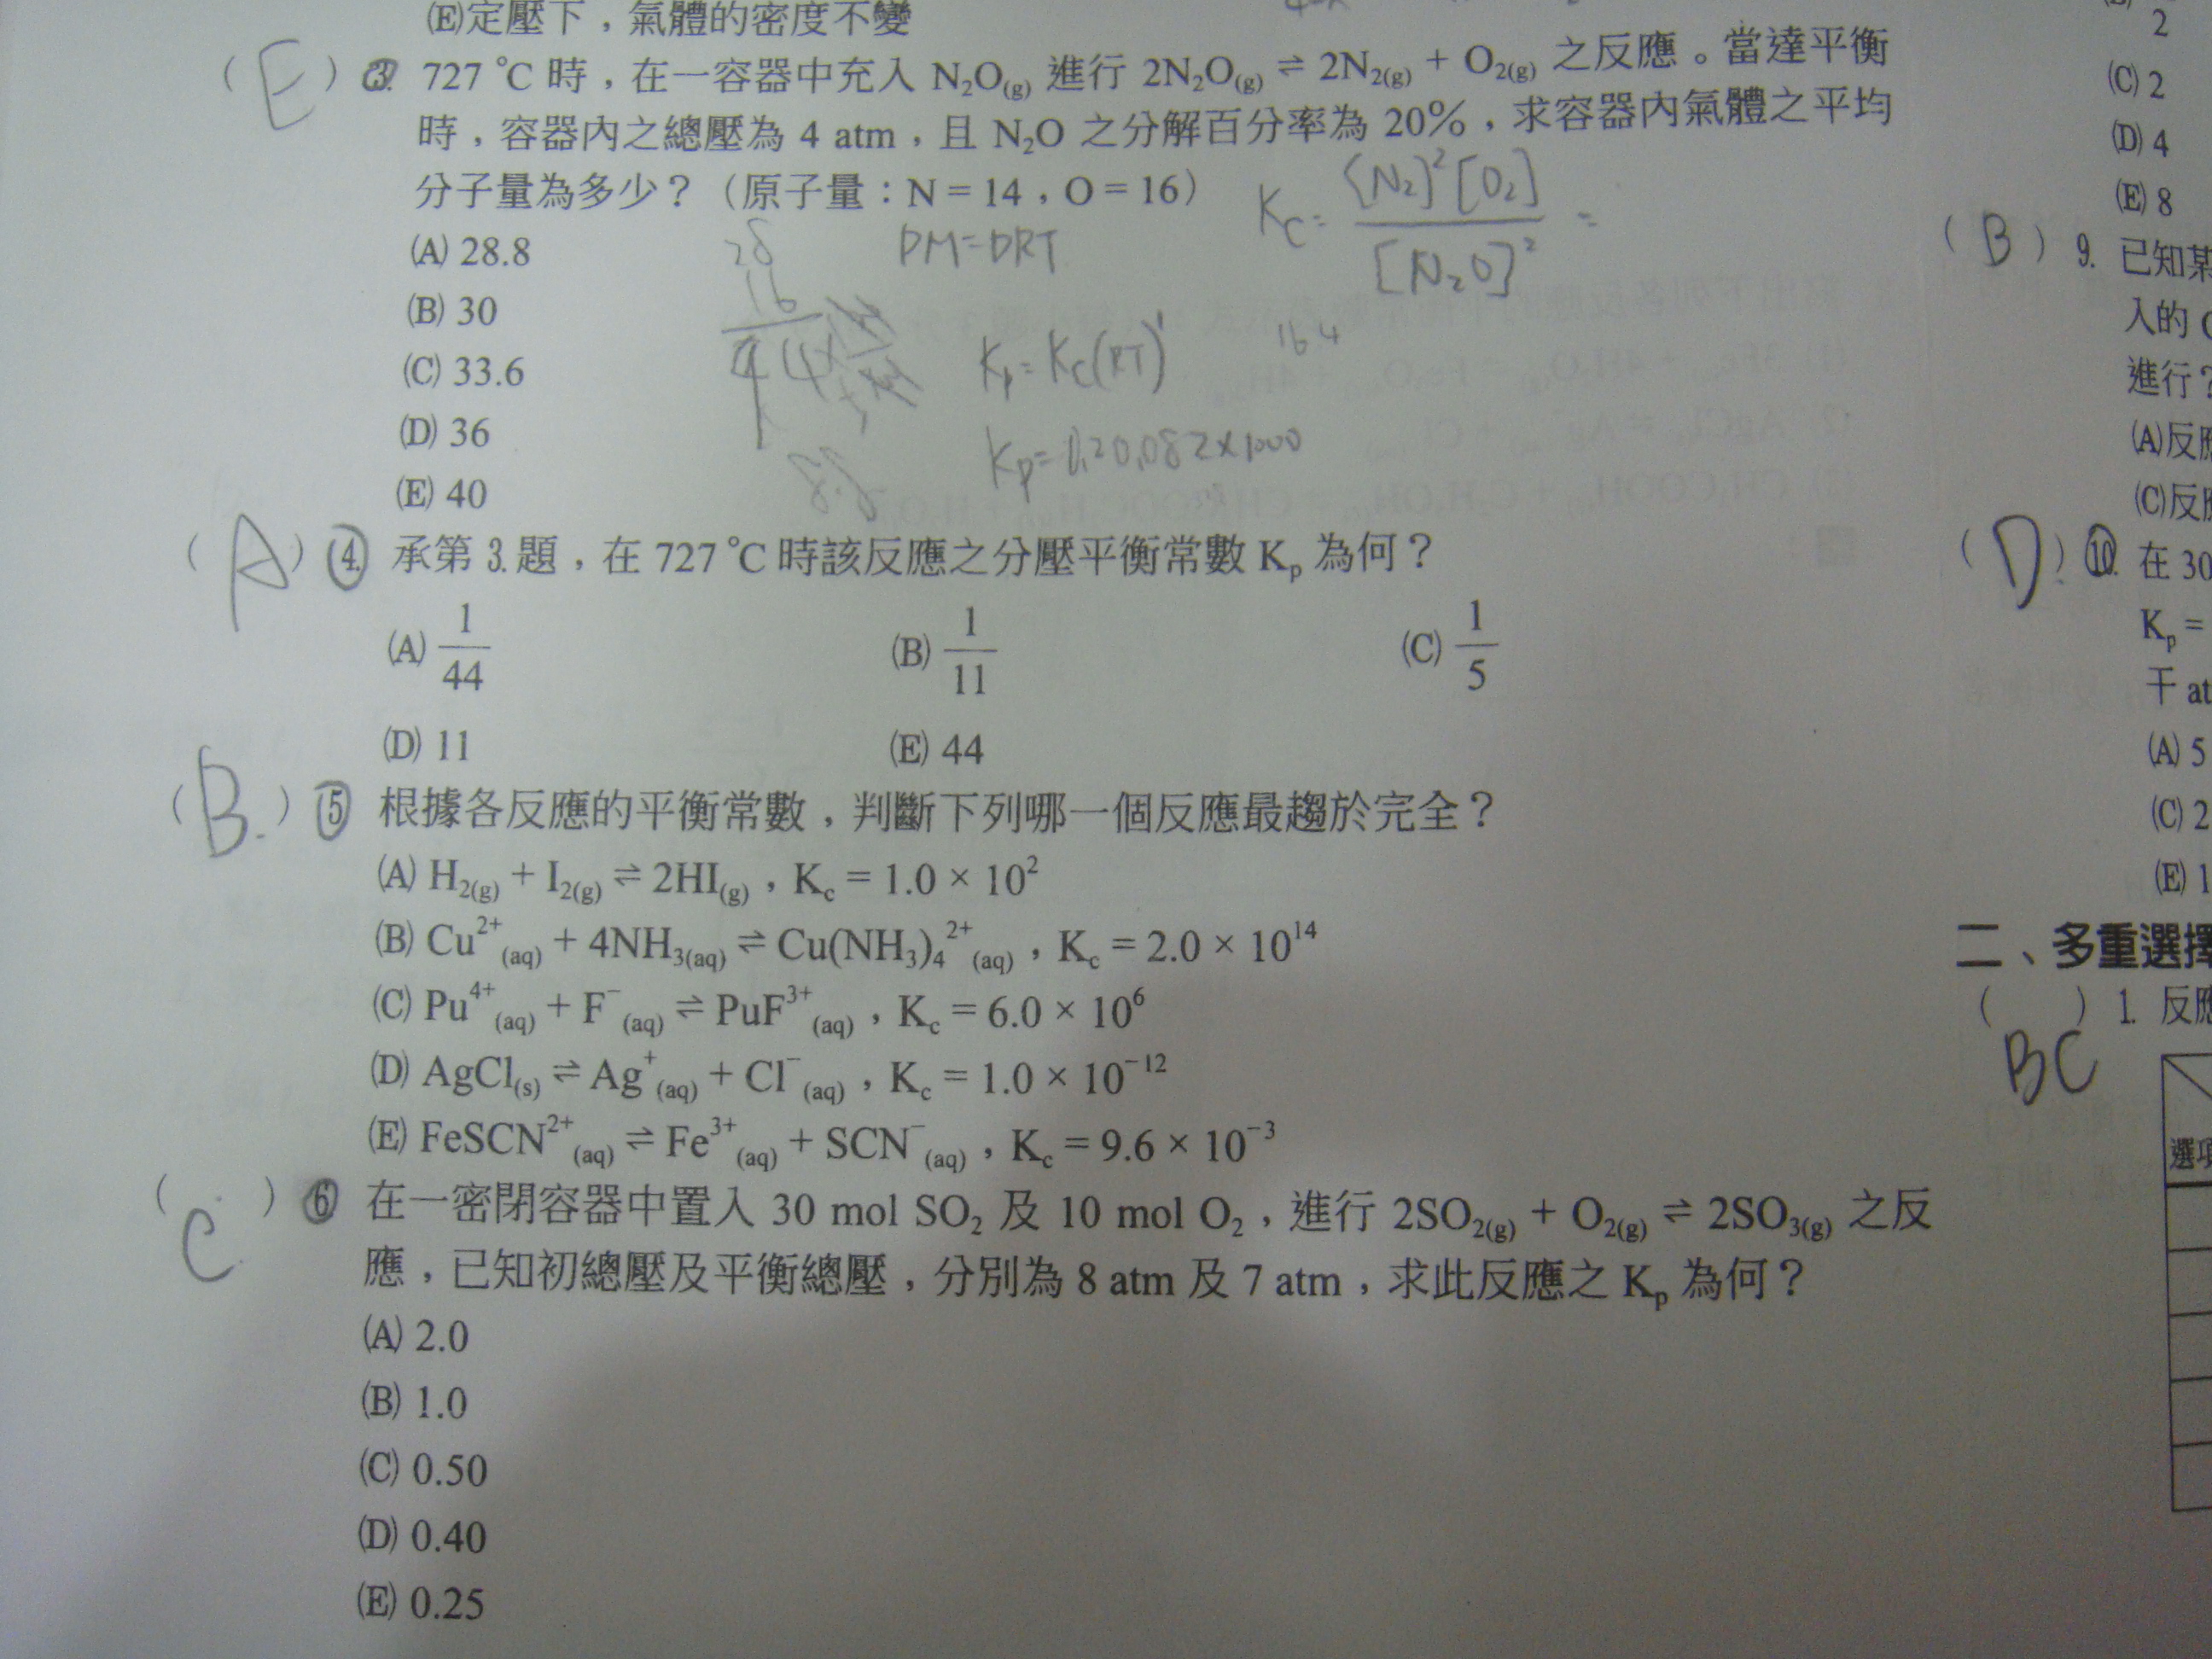 (E)定壓下，氣體的密度不變
( E ) 3. 727 ℃ 時，在一容器中充入 N₂O(g) 進行 2N₂O(g) ⇌ 2N₂(g) + O₂(g) 之反應。當達平衡
時，容器內之總壓為 4 atm，且 N₂O 之分解百分率為 20%，求容器內氣體之平均
分子量為多少？（原子量：N = 14，O = 16）
Kc = [N₂]²[O₂] / [N₂O]² =
(A) 28.8
28
16
PM=DRT
(B) 30
(C) 33.6
44
Kp = Kc(RT)¹
16 4
(D) 36
8.8
(E) 40
( A ) 4. 承第 3. 題，在 727 ℃ 時該反應之分壓平衡常數 Kₚ 為何？
(A) 1/44 (B) 1/11 (C) 1/5
(D) 11 (E) 44
( B. ) 5 根據各反應的平衡常數，判斷下列哪一個反應最趨於完全？
(A) H₂(g) + I₂(g) ⇌ 2HI(g)，Kc = 1.0 × 10²
(B) Cu²⁺(aq) + 4NH₃(aq) ⇌ Cu(NH₃)₄²⁺(aq)，Kc = 2.0 × 10¹⁴
(C) Pu⁴⁺(aq) + F⁻(aq) ⇌ PuF³⁺(aq)，Kc = 6.0 × 10⁶
(D) AgCl(s) ⇌ Ag⁺(aq) + Cl⁻(aq)，Kc = 1.0 × 10⁻¹²
(E) FeSCN²⁺(aq) ⇌ Fe³⁺(aq) + SCN⁻(aq)，Kc = 9.6 × 10⁻³
( C ) 6 在一密閉容器中置入 30 mol SO₂ 及 10 mol O₂，進行 2SO₂(g) + O₂(g) ⇌ 2SO₃(g) 之反
應，已知初總壓及平衡總壓，分別為 8 atm 及 7 atm，求此反應之 Kₚ 為何？
(A) 2.0
(B) 1.0
(C) 0.50
(D) 0.40
(E) 0.25
2
(C) 2
(D) 4
(E) 8
( B ) 9. 已知某
入的
進行？
(A)反應
(C)反應
( D ) 10. 在 30
Kₚ =
干 at
(A) 5
(C) 2
(E) 1
二、多重選擇
( ) 1. 反應
BC
選項